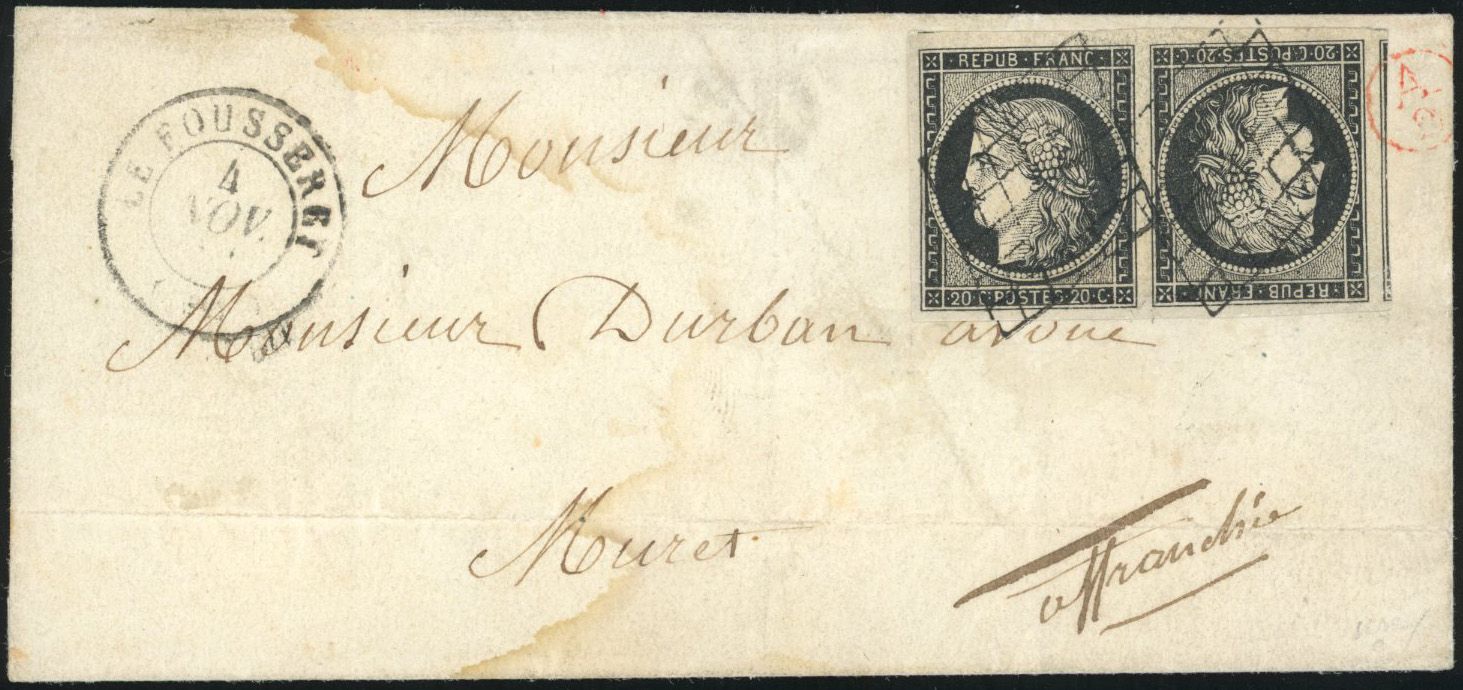 LE FOUSSERET
4
NOV.
REPUB·FRANC·
20·C·POSTES·20·C·
20·C·POSTES·20·C·
REPUB·FRANC·
Monsieur
Monsieur Durban avoue
Muret
affranchie